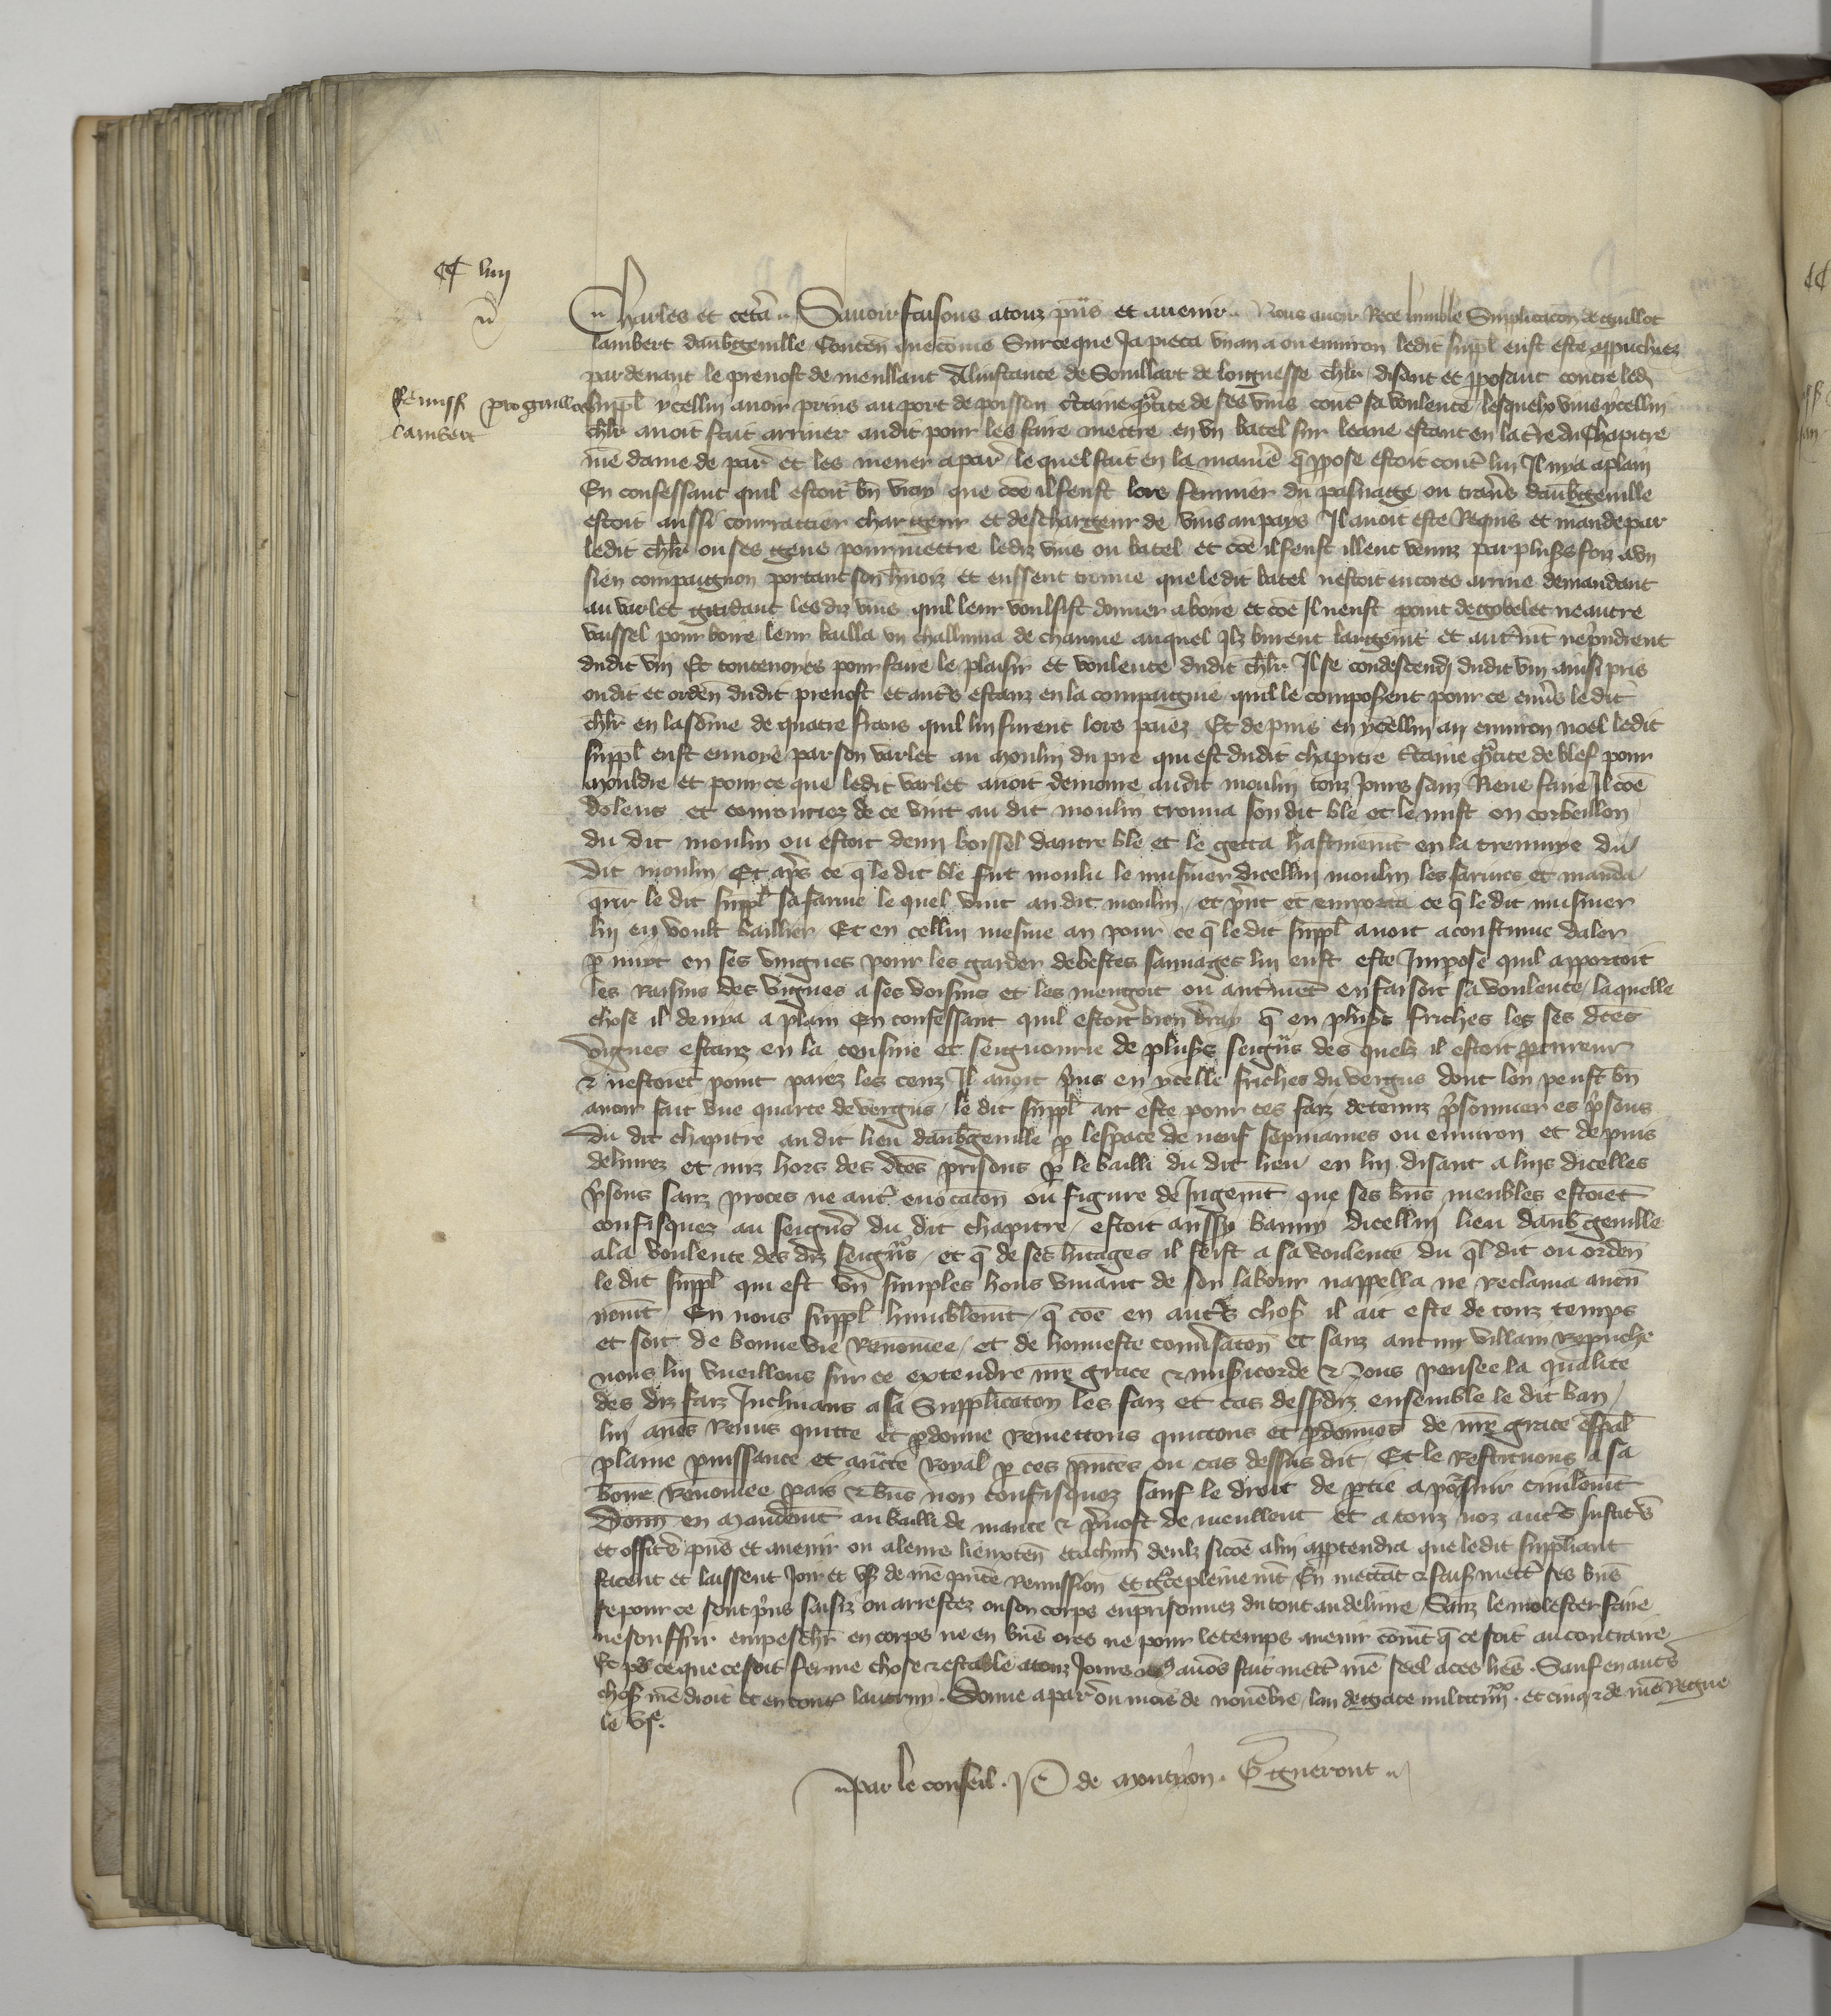 CC liiii
Remiss pro guillo
lambert
Charles et cetã. Savoir faisons a touz p̃ns et avenir. Nous avoir Rece humble Supplicacõn de guillot
lambert daubgenville Conten̄ que come Surceque Ja pieca un an a ou environ ledit suppl̄ eust este approuchiez
par devant le prevost de meullant Alinstance de Souillart de longuesse chl̃r disant et p̱posant contre led̄
suppl̄ ycellui avoir prins au port de poisson c̃taine q̃ntite de ses vins cont̃ sa voulente lesquelx vins ycellui
chl̃r avoit fait arriver audit pour les faire mettre en un batel sur leaue estant en la t̃re du Chapitre
n̄re dame de par̃ et les mener a par̃ le quel fait en la maniẽ q̃ p̱pose estoit cont̃ lui Il nya a plain
En confessant quil estoit bn̄ vray que coẽ il feust lors fermier du passage ou trav̓s daubgenville
estoit aussi courratier chargeur et deschargeur de vins au pays Il avoit este Requis et mande par
ledit chl̃r ou ses gens pour mettre lediz vins ou batel et coẽ il feust illeuc venuz par plus̃s foiz a un
sien compaignon portant son h̃noiz et eussent trouve que ledit batel nestoit encores arrive demandant
au varlet gardant lesdiz vins quil leur voulsist donner a boire et coẽ Il neust point de gobelet ne autre
vaissel pour boire leur bailla un challumia de chanvre auquel Ilz burent largem̄t et aut̃m̄t nep̓ndrent
dudit vin Et toutevoies pour faire le plaisir et voulente dudit chl̃r Il se condescendi dudit vin ainsi pris
ou dit et orden̄ dudit prevost et aut̓s estanz en la compaigne quil le composerent pour ce env̓s le dit
chl̃r en la som̃e de quatre frans quil lui furent lors paiez Et depuis en ycellui an environ noel ledit
suppl̄ eust envoye par son varlet au moulin du pre qui est dudit chapitre c̃taine q̃ntite de blef pour
mouldre et pource que ledit varlet avoit demoure audit moulin touz Jours sanz Riens faire Il coẽ
dolens et courrouciez de ce vint au dit moulin trouva son dit ble et le mist ou corbeillon
du dit moulin ou estoit demi boissel dautre ble et le getta hastivem̄t en la tremuye du
dit moulin Et ap̃s ce q̃ le dit ble fut moulu le musnier dicellui moulin les farines et manda
q̃rir le dit suppl̄ sa farine le quel vint audit moulin et p̃nt et emporta ce q̃ le dit musnier
lui en voult baillier Et en cellui mesme an pour ce q̃ ledit suppl̄ avoit acoustume daler
p̱ nuyt en ses vingnes pour les garder debestes sauvages lui eust este Impose quil apportoit
les raisins des vignes a ses voisins et les mengoit ou aut̃mēt en faisoit sa voulente laquelle
chose il denya a plain En confessant quil estoit bien vray q̃ en plus̃s friches les ses dtẽs
vignes estanz en la censive et seignourie de plus̃s seign̄s des quelz il estoit p̱cureur
& nestoiēt point paiez les cenz Il avoit p̃ns en ycelle friches du vergus dont len peust bn̄
avoir fait une quarte de vergus le dit suppl̄ ait este pour ces faiz detenuz p̃sonnier es p̃sons
du dit chapitre audit lieu daubgenville p̱ lespace de neuf sepmaines ou environ et depuis
delivrez et mis hors des dtẽs prisons p̱ le bailli du dit lieu en lui disant a luis dicelles
p̃sons sanz proces ne aut̃ evocatōn ou figure de Jugem̄t que ses bn̄s meubles estoiēt
confisquez au seign̄s du dit chapitre estoit aussy banny dicellui lieu daubgenville
a la voulente des diz seign̄s et q̃ de ses h̃itages il feist a sa voulente du q̃l dit ou orden̄
le dit suppl̄ qui est un simples homs vivant de son labour nappella ne reclama aucun̄
nem̄t En nous suppl̄ humblem̄t q̃ coẽ en aut̓s chos̃ il ait este de touz temps
et soit de bonne vie Renom̃ee et de honneste conv̓satōn et sanz aucun villain Reprouche
nous lui vueillons sur ce extendre n̄re grace & mis̃icorde & Nous pensee la qualite
des diz faiz Inclinans a sa Supplicatōn les faiz et cas dess̓diz ensemble le dit ban
lui avōs Remis quitte et p̱donne Remettons quictons et p̱donnōs de n̄re grace esp̄al
plaine puissance et auc̃te royal p̱ ces p̃ntes ou cas dessus dit Et le Restituons a sa
bonne Renom̃ee pais & bn̄s non confisquez sauf le droit de p̱tie a poursuir civilem̄t
Donn̄ en mandem̄t au bailli de mante & p̃vost de meullent Et a touz noz aut̓s Justic̓s
et offic̓s p̃ns et avenir ou aleurs lieuxten̄ et a chūn deulx sicōe a lui app̱tendra que ledit suppliant
facent et laissent Joir et us̃ de n̄re p̃nte remission et g̃ce pleinemēt En mettāt & fais̃ mettr̃ ses bn̄s
se pour ce sont p̃ns saisiz ou arrestez ou son corps emprisonnez du tout au delivre Sanz le molester faire
ne souffrir empeschr̃ en corps ne en bn̄s ores ne pour le temps avenir com̃t q̃ ce soit au contraire
Et pour ceque cesoit ferme chose & estable a touz Jours avōs fait mettr̃ n̄re seel a ces lr̃es. Sauf en aut̓s
chos̃ n̄re droit et en tout̃ lautruy. Donne a par̃ ou mois de novembre lan de grace mil ccc iiiixx et cinq & de n̄re Regne
le vIe.
par le conseil. P de montyon. Gigueront